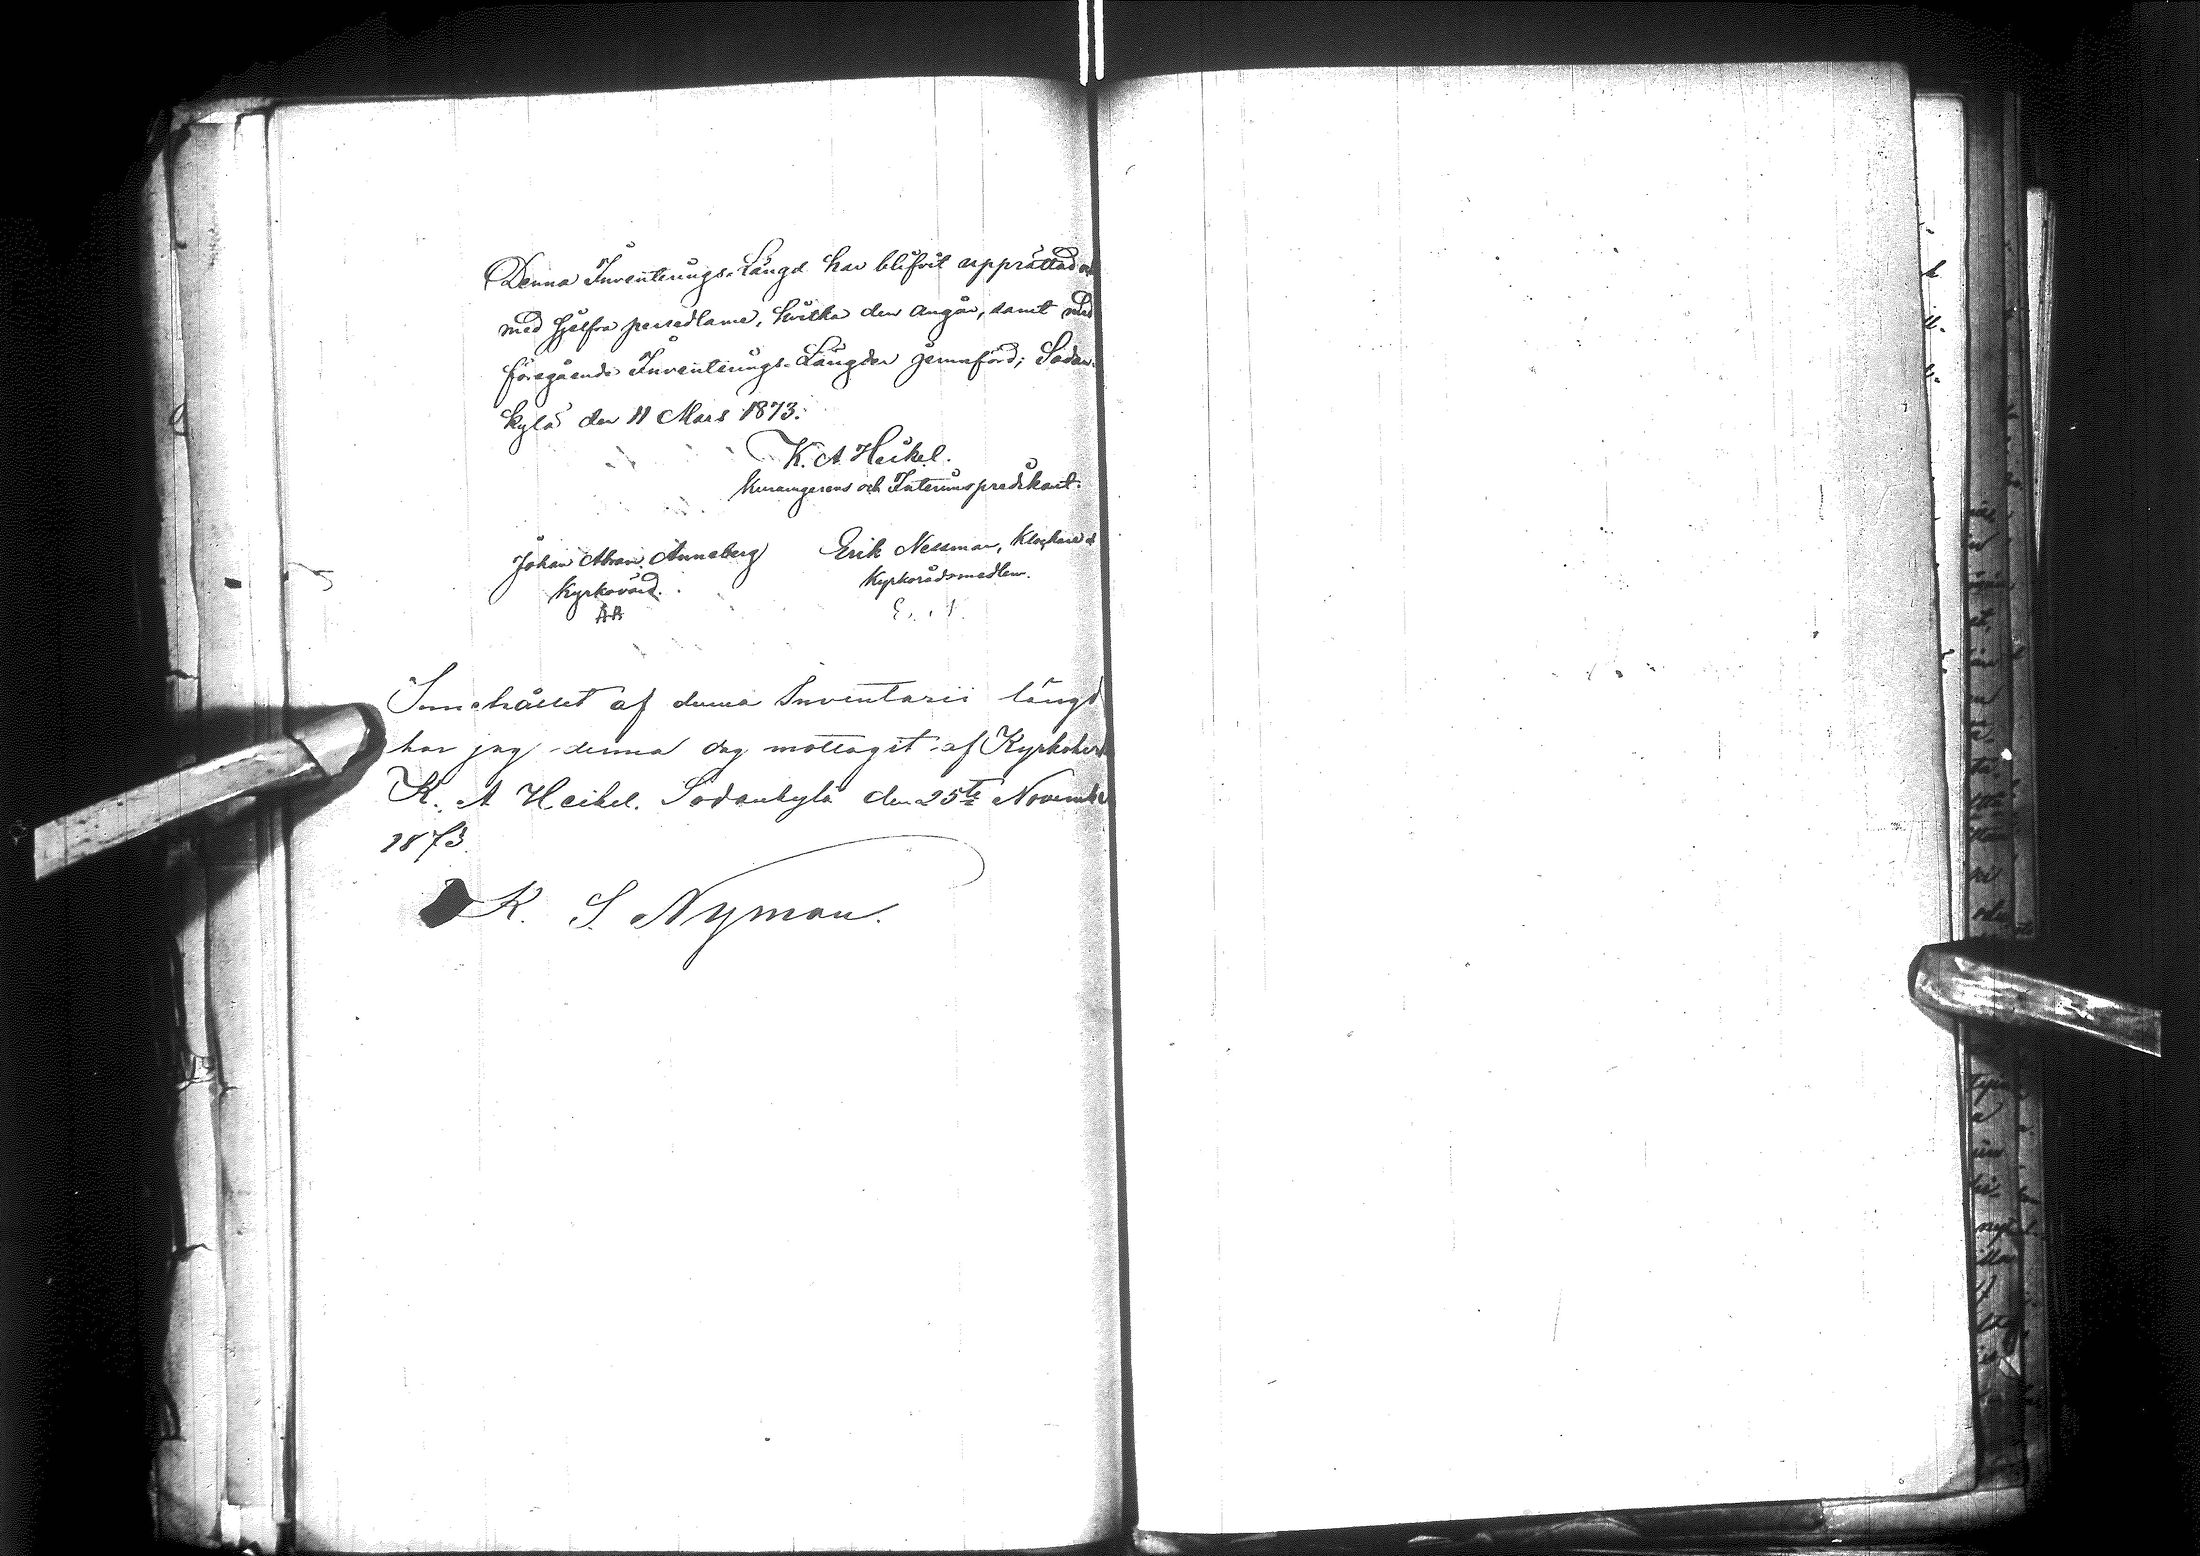 Denna Inventerings-Längd har blifvit upprättad och
med sjelfva persedlarne, hvilka den angår, samt med
föregående Inventerings-Längder jemnförd; Sodan-
kylä den 11 Mars 1873.
K. A. Heikel.
och Interimspredikant.
Johan Abram Anneberg
Kyrkovärd.
Erik Nessman, Klockare o
Kyrkorådsmedlem.
Innehållet af denna Inventarii längd
har jag denna dag mottagit af Kyrkoherd
K. A Heikel. Sodankylä den 25te November
1873.
K. S. Nyman.